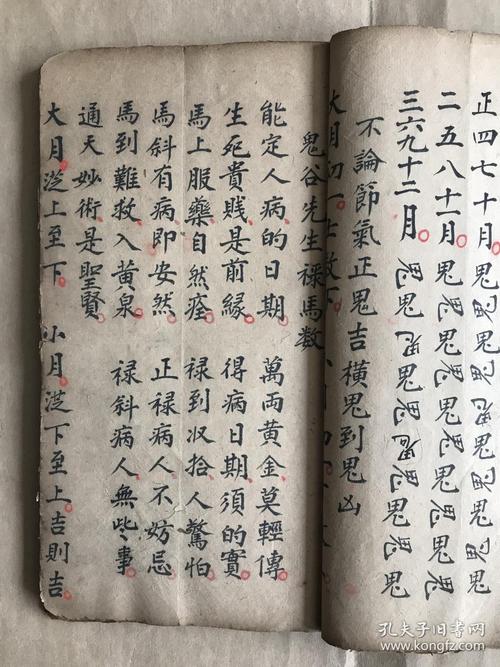 正四七十月鬼鬼鬼鬼鬼鬼鬼鬼鬼
二五八十一月鬼鬼鬼鬼鬼鬼鬼鬼鬼
三六九十二月鬼鬼鬼鬼鬼鬼鬼鬼鬼
不論節氣正鬼吉橫鬼到鬼凶
大月初一上数下
鬼谷先生禄馬数
能定人病的日期 萬両黄金莫輕傳
生死貴賤是前緣 得病日期須的實
馬上服藥自然痊 禄到収拾人驚怕
馬斜有病即安然 正禄病人不妨忌
馬到難救入黄泉 禄斜病人無些事
通天妙術是聖賢
大月從上至下 小月從下至上吉則吉
孔夫子旧书网
www.kongfz.com